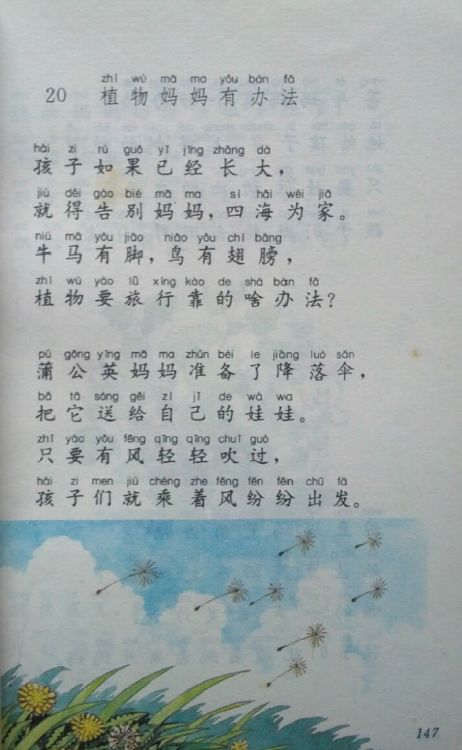 zhí wù mā ma yǒu bàn fǎ
20 植物妈妈有办法
hái zi rú guǒ yǐ jīng zhǎng dà
孩子如果已经长大，
jiù děi gào bié mā ma sì hǎi wéi jiā
就得告别妈妈，四海为家。
niú mǎ yǒu jiǎo niǎo yǒu chì bǎng
牛马有脚，鸟有翅膀，
zhí wù yào lǚ xíng kào de shá bàn fǎ
植物要旅行靠的啥办法？
pú gōng yīng mā ma zhǔn bèi le jiàng luò sǎn
蒲公英妈妈准备了降落伞，
bǎ tā sòng gěi zì jǐ de wá wa
把它送给自己的娃娃。
zhǐ yào yǒu fēng qīng qīng chuī guò
只要有风轻轻吹过，
hái zi men jiù chéng zhe fēng fēn fēn chū fā
孩子们就乘着风纷纷出发。
147